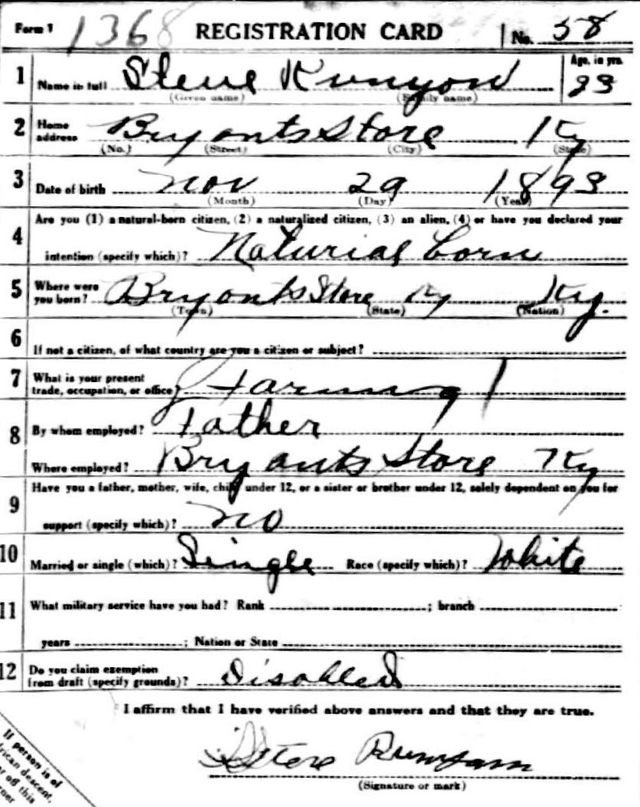 Form 1 1368 REGISTRATION CARD No. 58
1 Name in full Steve Runyon Age, in yrs. 23
(Given name) (Family name)
2 Home address Bryants Store Ky
(No.) (Street) (City) (State)
3 Date of birth Nov 29 1893
(Month) (Day) (Year)
4 Are you (1) a natural-born citizen, (2) a naturalized citizen, (3) an alien, (4) or have you declared your
intention (specify which)? Naturial born
5 Where were you born? Bryants Store Ky Ky.
(Town) (State) (Nation)
6 If not a citizen, of what country are you a citizen or subject?
7 What is your present trade, occupation, or office? Farming
8 By whom employed? Father
Where employed? Bryants Store Ky
9 Have you a father, mother, wife, child under 12, or a sister or brother under 12, solely dependent on you for
support (specify which)? no
10 Married or single (which)? Single Race (specify which)? White
11 What military service have you had? Rank ; branch
years ; Nation or State
12 Do you claim exemption from draft (specify grounds)? Disabled
I affirm that I have verified above answers and that they are true.
Steve
(Signature or mark)
If person is of
rican descent,
r off this
rner